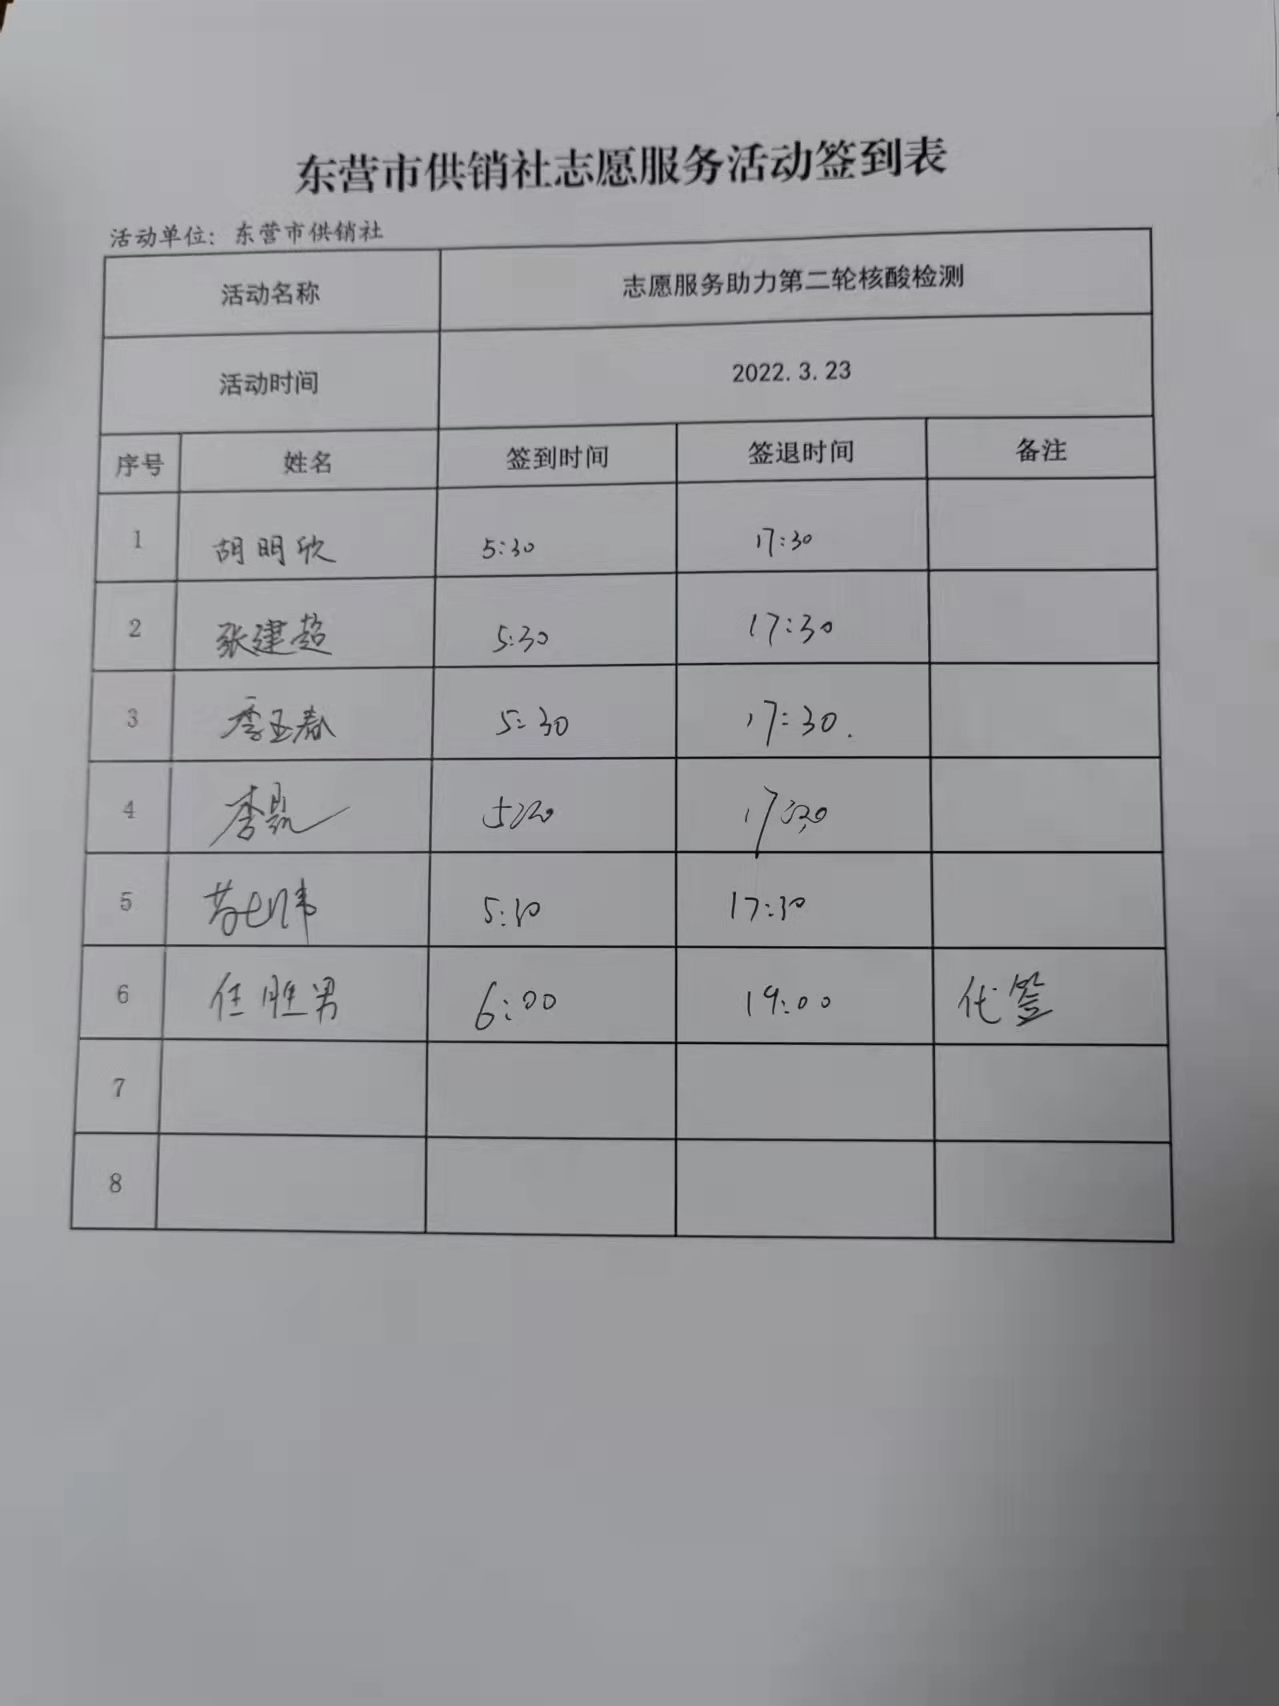 东营市供销社志愿服务活动签到表
活动单位：东营市供销社
活动名称 志愿服务助力第二轮核酸检测
活动时间 2022.3.23
序号 姓名 签到时间 签退时间 备注
1 胡明欣 5:30 17:30
2 张建超 5:30 17:30
3 季玉春 5:30 17:30.
4 李 5:30 17:30
5 5:30 17:30
6 任胜男 6:00 19:00 代签
7
8